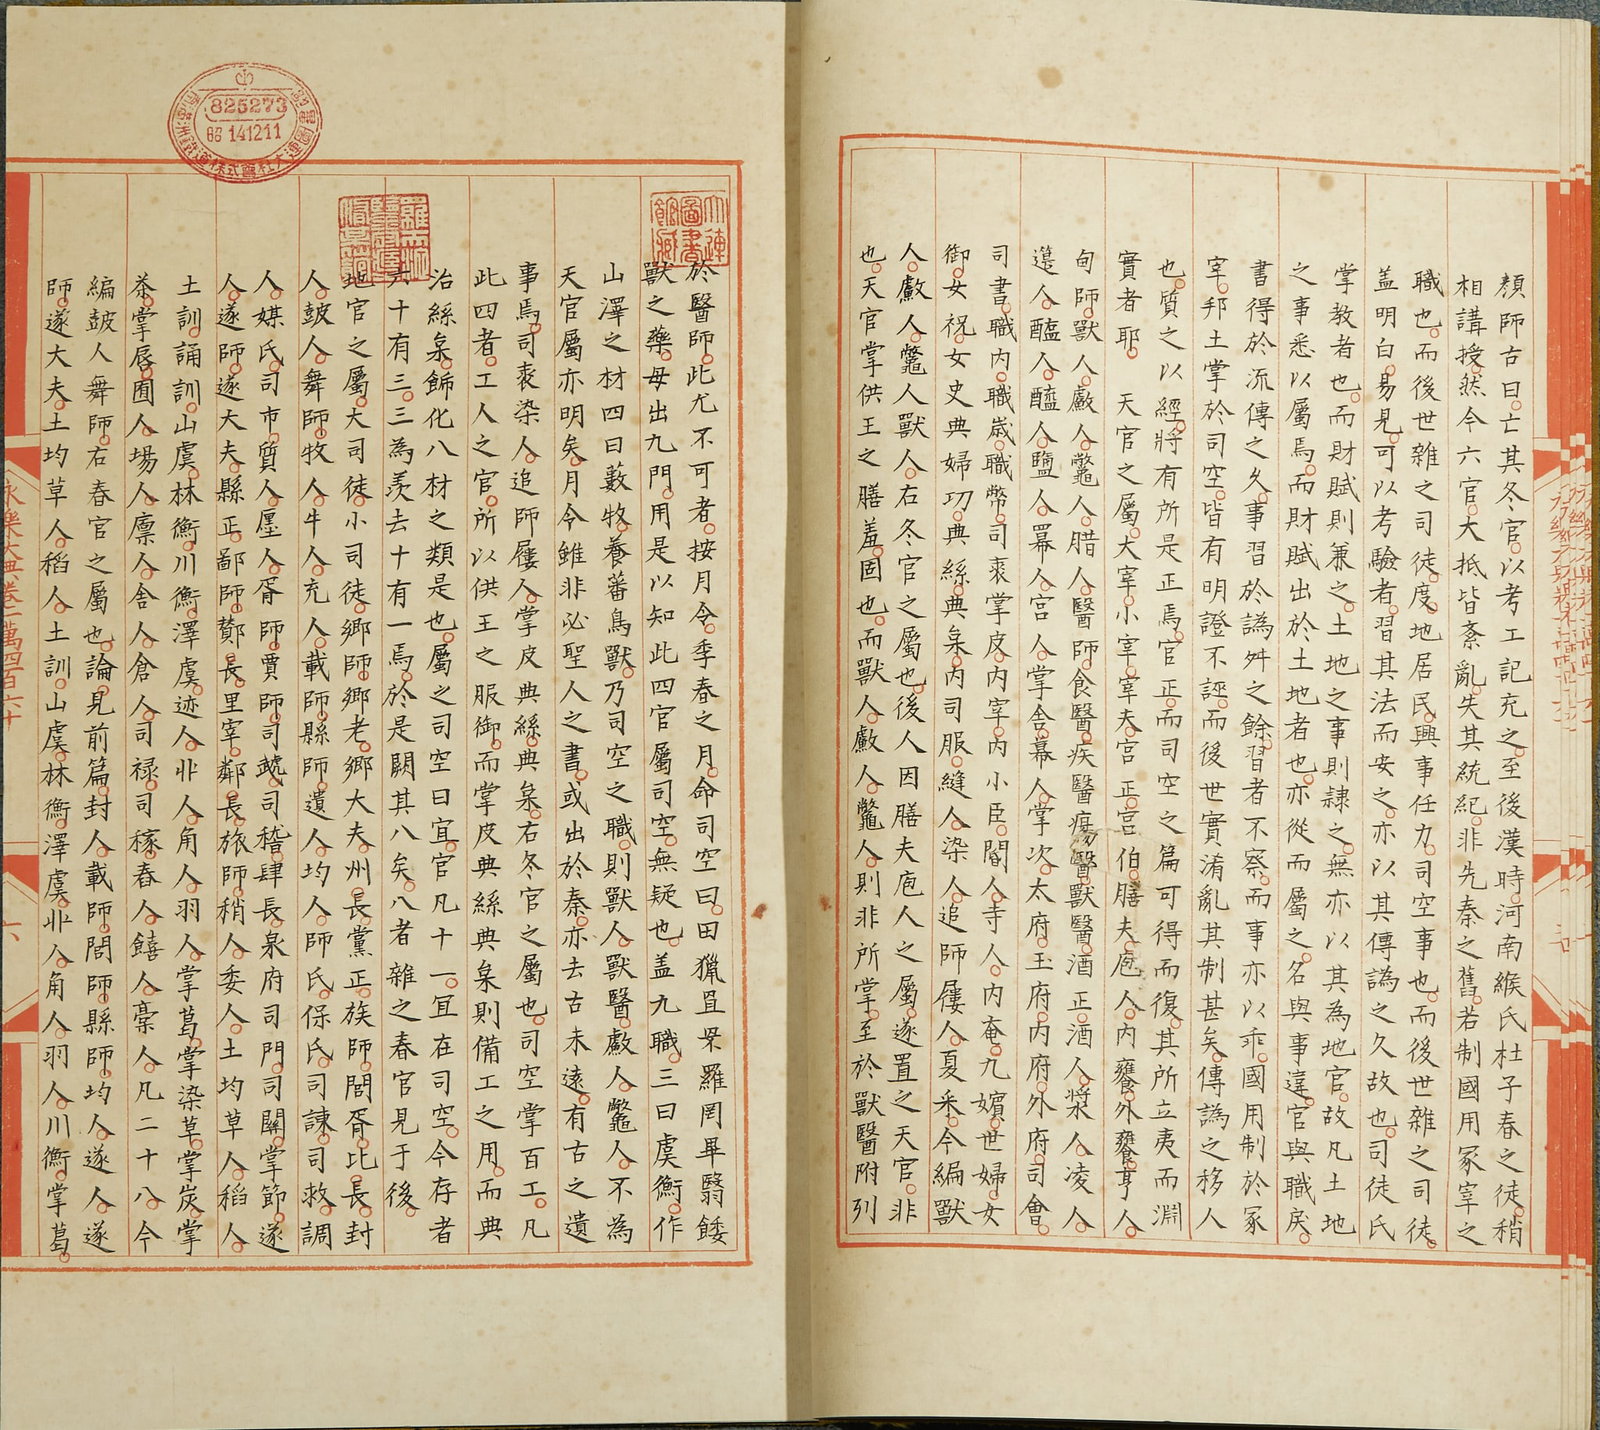 顏師古曰亡其冬官以考工記充之至後漢時河南緱氏杜子春之徒稍
相講授然今六官大抵皆紊亂失其統紀非先秦之舊若制國用冢宰之
職也而後世雜之司徒度地居民興事任力司空事也而後世雜之司徒
盖明白易見可以考驗者習其法而安之亦以其傳譌之久故也司徒氏
掌教者也而財賦則兼之土地之事則隷之無亦以其為地官故凡土地
之事悉以屬焉而財賦出於土地者也亦從而屬之名與事違官與職戾
書得於流傳之久事習於譌舛之餘習者不察而事亦以乖國用制於冢
宰邦土掌於司空皆有明證不誣而後世實淆亂其制甚矣傳譌之移人
也質之以經將有所是正焉官正而司空之篇可得而復其所立夷而淵
實者耶　天官之屬大宰小宰宰夫宮正宮伯膳夫庖人内饔外饔亨人
甸師獸人䱷人鼈人腊人醫師食醫疾醫瘍醫獸醫酒正酒人漿人凌人
籩人醢人醯人鹽人冪人宮人掌舍幕人掌次太府玉府内府外府司會
司書職内職歲職幣司裘掌皮内宰内小臣閽人寺人内奄九嬪世婦女
御女祝女史典婦功典絲典枲内司服縫人染人追師屨人夏采今編獸
人䱷人鼈人獸人右冬官之屬也後人因膳夫庖人之屬遂置之天官非
也天官掌供王之膳羞固也而獸人䱷人鼈人則非所掌至於獸醫附列
於醫師此尤不可者按月令季春之月命司空曰田獵罝罘羅罔畢翳餧
獸之藥毋出九門用是以知此四官屬司空無疑也盖九職三曰虞衡作
山澤之材四曰藪牧養蕃鳥獸乃司空之職則獸人獸醫䱷人鼈人不為
天官屬亦明矣月令雖非必聖人之書或出於秦亦去古未遠有古之遺
事焉司裘染人追師屨人掌皮典絲典枲右冬官之屬也司空掌百工凡
此四者工人之官所以供王之服御而掌皮典絲典枲則備工之用而典
治絲枲飾化八材之類是也屬之司空曰宜官凡十一宜在司空今存者
六十有三三為羨去十有一焉於是闕其八矣八者雜之春官見于後
地官之屬大司徒小司徒鄉師鄉老鄉大夫州長黨正族師閭胥比長封
人皷人舞師牧人牛人充人載師縣師遺人均人師氏保氏司諫司救調
人媒氏司市質人廛人胥師賈師司虣司稽肆長泉府司門司關掌節遂
人遂師遂大夫縣正鄙師酇長里宰鄰長旅師稍人委人土均草人稻人
土訓誦訓山虞林衡川衡澤虞迹人丱人角人羽人掌葛掌染草掌炭掌
荼掌蜃囿人場人廩人舍人倉人司禄司稼舂人饎人槀人凡二十八今
編皷人舞師右春官之屬也論見前篇封人載師閭師縣師均人遂人遂
師遂大夫土均草人稻人土訓山虞林衡澤虞丱人角人羽人川衡掌葛
永樂大典卷一萬四百六十
六
大連圖書館藏
825273
昭14.12.11
南滿洲鐵道株式會社大連圖書館